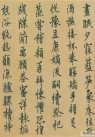 晝眠夕寐藍筍象牀絃
歌酒讌接杯舉觴矯手頓足
悅豫且康嫡後嗣續祭祀
蒸嘗稽顙再拜悚懼恐
惶牋牒簡要顧答審詳骸垢
想浴執熱願涼驢騾犢特